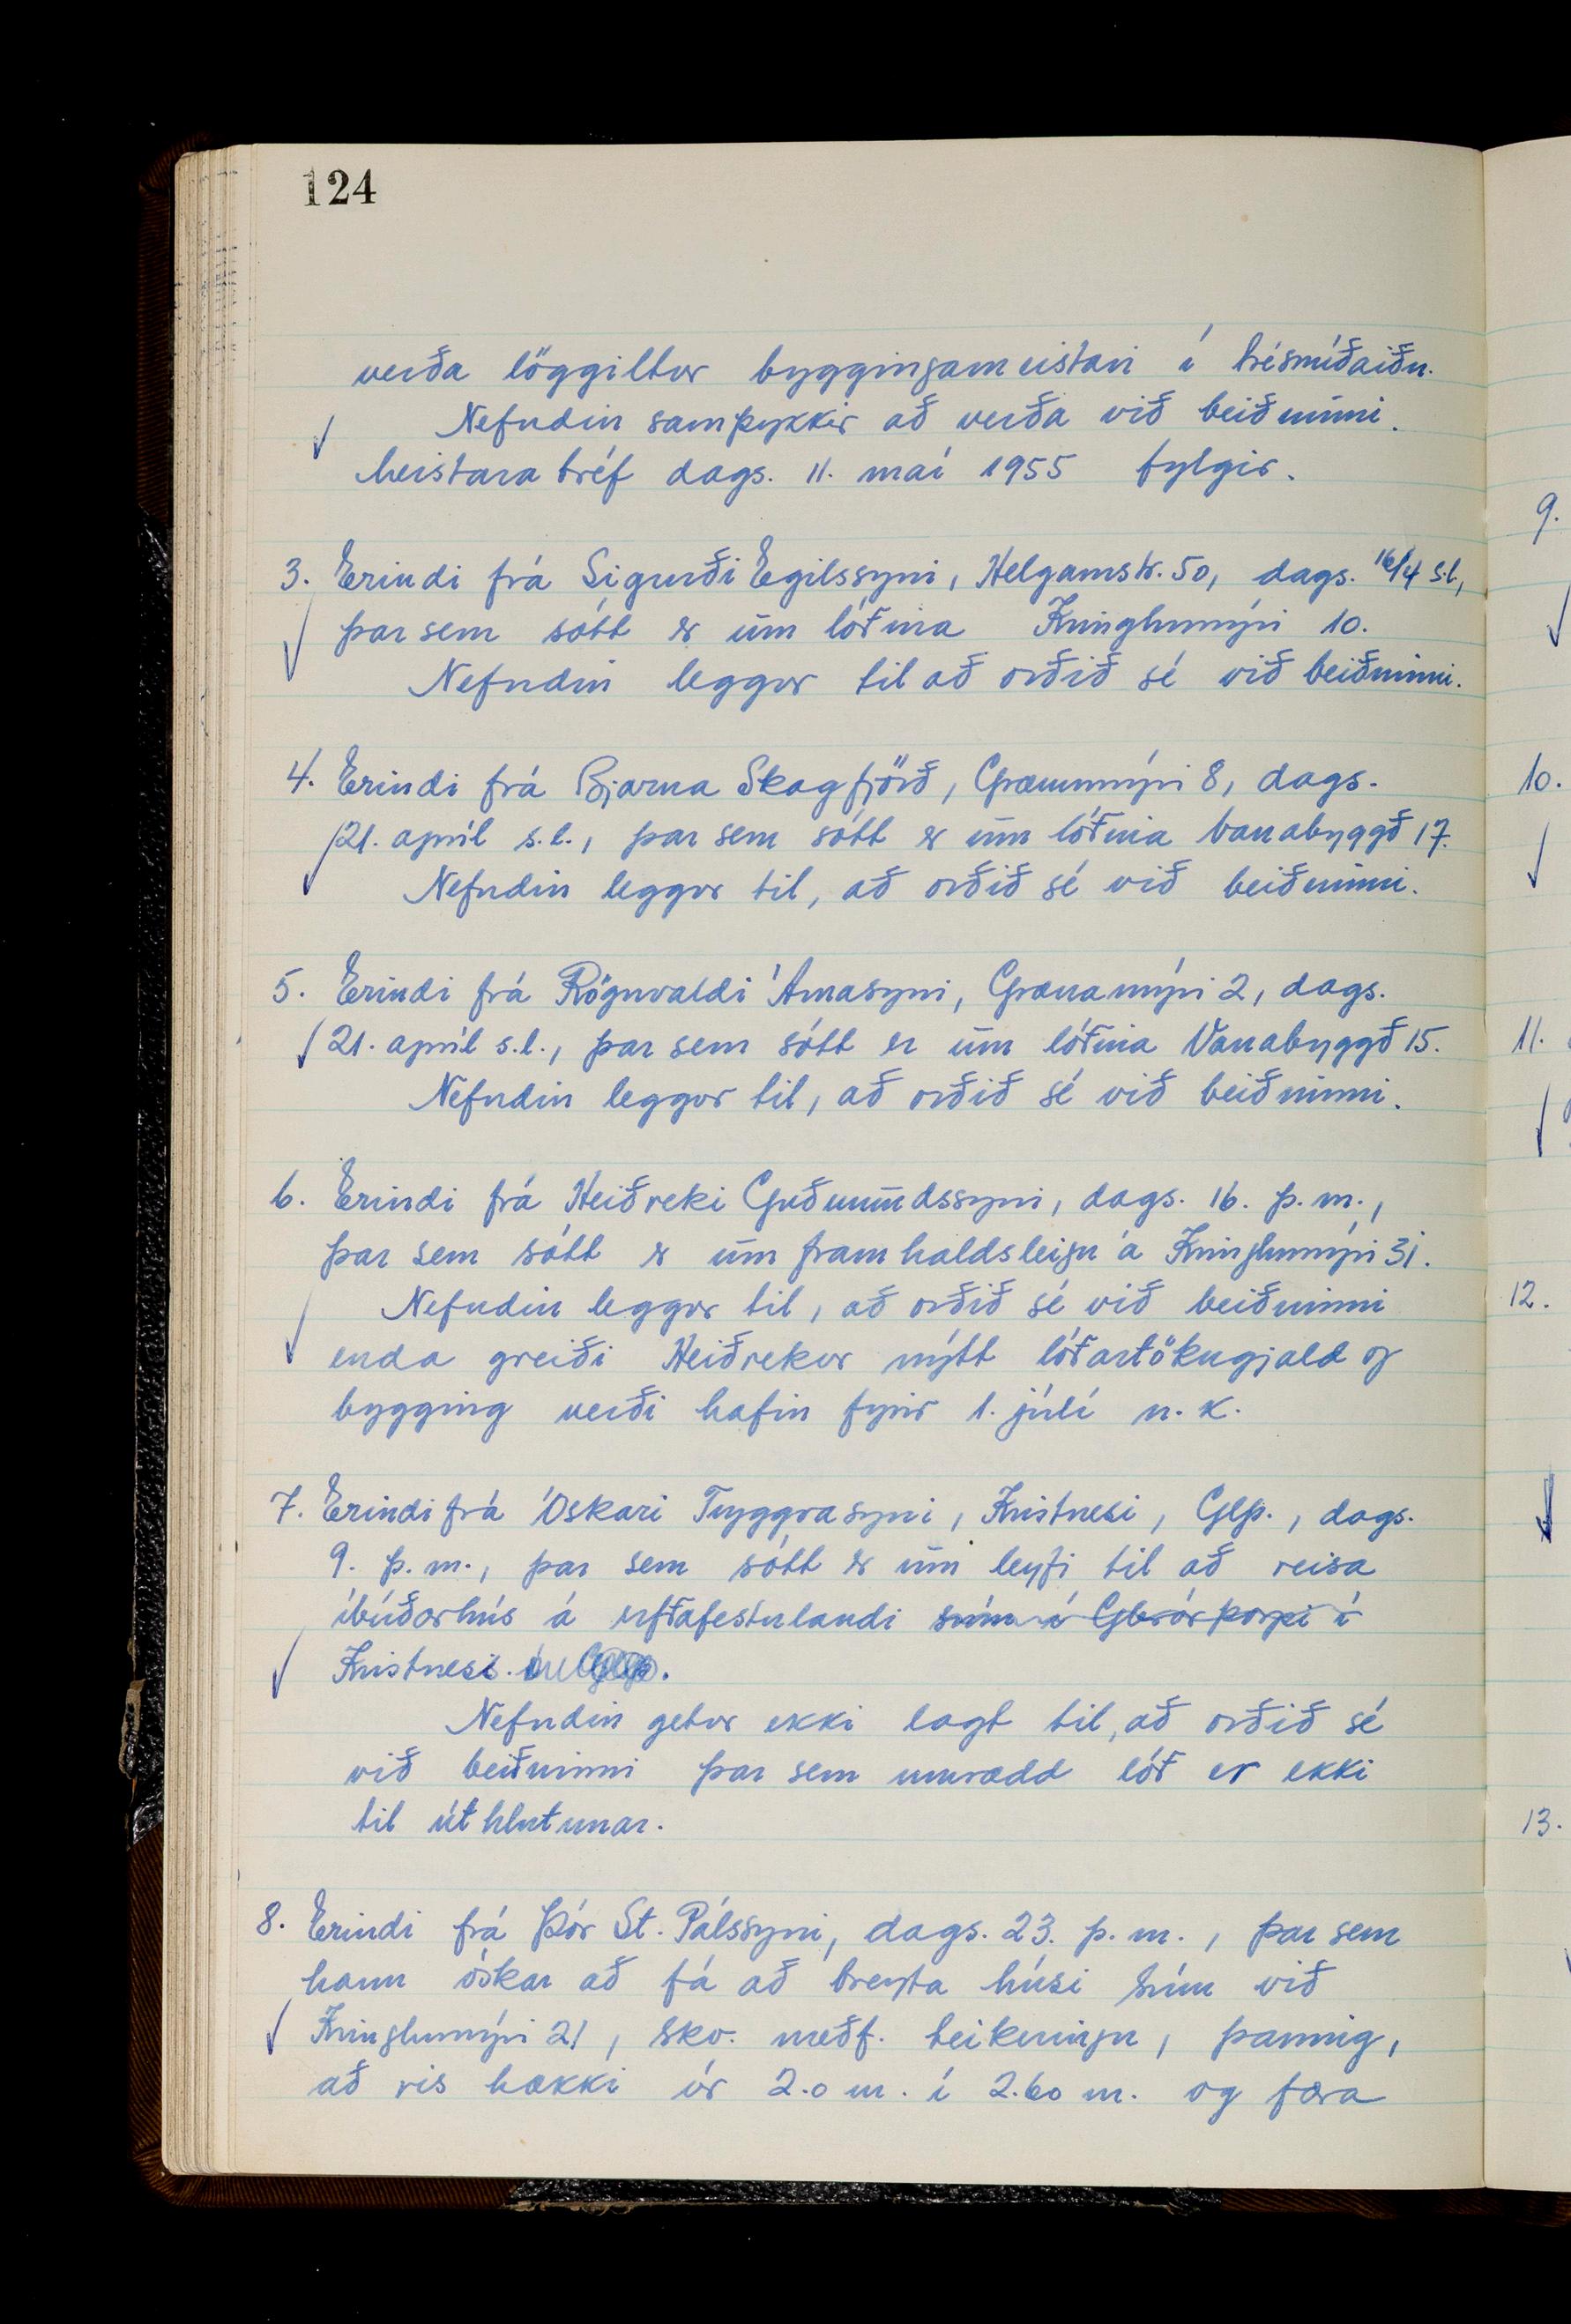 124
verða löggiltur byggingameistari í trésmíðaiðn.
Nefndin samþykkir að verða við beiðninni.
Meistarabréf dags. 11. maí 1955 fylgir.
3. Erindi frá Sigurði Egilssyni, Helgamstr. 50, dags. 16/4 s.l,
þar sem sótt er um lóðina Kringlumýri 10.
Nefndin leggur til að orðið sé við beiðninni.
4. Erindi frá Bjarna Skagfjörð, Grænumýri 8, dags.
21. apríl s.l., þar sem sótt er um lóðina Vanabyggð 17.
Nefndin leggur til, að orðið sé við beiðninni.
5. Erindi frá Rögnvaldi Árnasyni, Grænamýri 2, dags.
21. apríl s.l., þar sem sótt er um lóðina Vanabyggð 15.
Nefndin leggur til, að orðið sé við beiðninni.
6. Erindi frá Heiðreki Guðmundssyni, dags. 16. þ.m.,
þar sem sótt er um framhaldsleigu á Kringlumýri 31.
Nefndin leggur til, að orðið sé við beiðninni
enda greiði Heiðrekur nýtt lóðartökugjald og
bygging verði hafin fyrir 1. júlí n.k.
7. Erindi frá Óskari Tryggvasyni, Kristnesi, Glþ., dags.
9. þ.m., þar sem sótt er um leyfi til að reisa
íbúðarhús á erfðafestulandi sínu í Glerárþorpi í
Kristnesi.
Nefndin getur ekki lagt til, að orðið sé
við beiðninni þar sem umrædd lóð er ekki
til úthlutunar.
8. Erindi frá Þór St. Pálssyni, dags. 23. þ.m., þar sem
hann óskar að fá að breyta húsi sínu við
Kringlumýri 21, skv. meðf. teikningu, þannig,
að ris hækki úr 2.0 m. í 2.60 m. og færa
9.
10.
11.
12.
13.